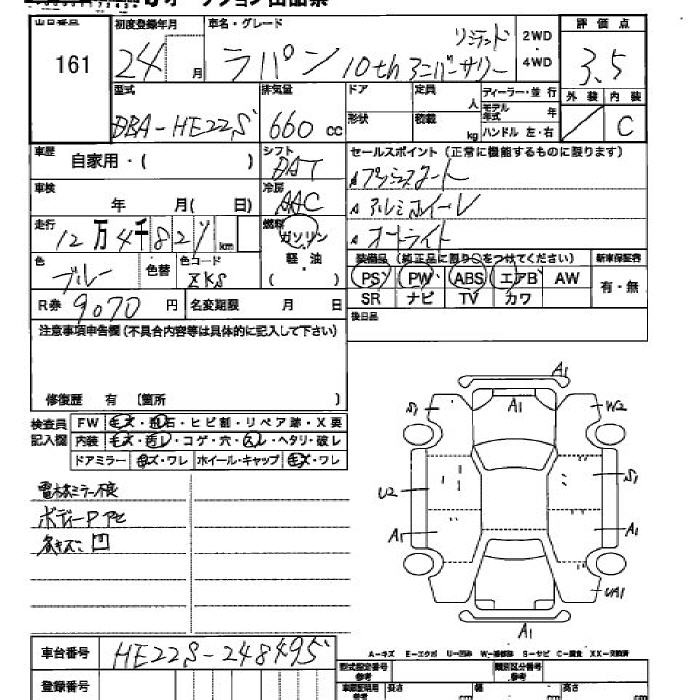 出品番号 161
初度登録年月 24 月
車名・グレード ラパン 10th アニバーサリー リミテッド
2WD
4WD
評価点 3.5
外装 内装 C
型式 DBA-HE22S
排気量 660 cc
ドア
形状
定員 人
積載 kg
ディーラー・並行
モデル年式 年
ハンドル 左・右
車歴 自家用・( )
シフト DAT
セールスポイント(正常に機能するものに限ります)
プッシュスタート
アルミホイール
オートライト
車検 年 月( 日)
冷房 AAC
走行 12万4千82 km
燃料 ガソリン
軽・油
( )
色 ブルー 色替
色コード ZKS
装備品(純正品に限り○をつけてください) 新車保証書
PS PW ABS エアB AW 有・無
SR ナビ TV カワ
R券 9070 円 名変期限 月 日
後日品
注意事項申告欄(不具合内容等は具体的に記入して下さい)
修復歴 有 〔箇所 〕
検査員記入欄
FW キズ・飛石・ヒビ割・リペア跡・X要
内装 キズ・汚レ・コゲ・穴・スレ・ヘタリ・破レ
ドアミラー キズ・ワレ ホイール・キャップ キズ・ワレ
電格ミラー不良
ボディー
凹
A1
A1
S1 W2
U2 S1
A1 A1
UA1
A1
A-キズ E-エクボ U-凹み W-補修跡 S-サビ C-腐食 XX-交換済
車台番号 HE22S-248495
登録番号
型式指定番号 参考
類別区分番号 参考
車庫証明用 参考 長さ cm 幅 cm 高さ cm